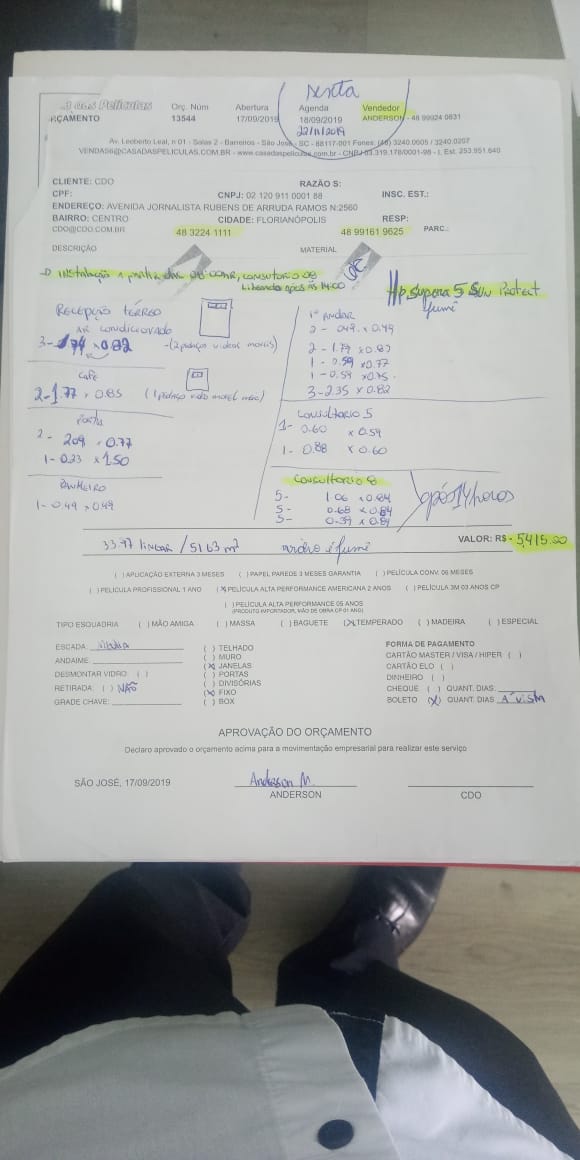 sexta
Casa das Películas Orç. Núm Abertura Agenda Vendedor
ORÇAMENTO 13544 17/09/2019 18/09/2019 ANDERSON - 48 99924 0831
22/11/2019
Av. Leoberto Leal, n 01 - Salas 2 - Barreiros - São José - SC - 88117-001 Fones: (48) 3240.0005 / 3240.0207
CLIENTE: CDO RAZÃO S:
CPF: CNPJ: 02 120 911 0001 88 INSC. EST.:
ENDEREÇO: AVENIDA JORNALISTA RUBENS DE ARRUDA RAMOS N:2560
BAIRRO: CENTRO CIDADE: FLORIANÓPOLIS RESP:
CDO@CDO.COM.BR 48 3224 1111 48 99161 9625 PARC.:
DESCRIÇÃO MATERIAL
Instalação a partir das 08:00HR, consultorio 08
Liberado após às 14:00 OK
Hp Supera 5 Sun Protect
fumê
Recepção térreo
Ar condicionado
3- 1.74 x 0.82 - (2 pedaços
Café
2- 1.77 x 0.85 (1 pedaço
Porta
2- 209 x 0.77
1- 0.33 x 1.50
Banheiro
1- 0.49 x 0.49
1º Andar
2- 0.49 x 0.49
2- 1.79 x 0.87
1- 0.59 x 0.77
1- 0.59 x 0.75
3- 2.35 x 0.82
Consultorio 5
1- 0.60 x 0.59
1- 0.88 x 0.60
Consultorio 8
5- 1.06 x 0.84
5- 0.68 x 0.84
5- 0.39 x 0.84
após 14 horas
33.97 linear / 51.63 m² vidro é fumê VALOR: R$ - 5,415.00
( ) APLICAÇÃO EXTERNA 3 MESES ( ) PAPEL PAREDE 3 MESES GARANTIA ( ) PELÍCULA CONV. 06 MESES
( ) PELÍCULA PROFISSIONAL 1 ANO (X) PELÍCULA ALTA PERFORMANCE AMERICANA 2 ANOS ( ) PELÍCULA 3M 03 ANOS CP
( ) PELÍCULA ALTA PERFORMANCE 05 ANOS
(PRODUTO IMPORTADOR, MÃO DE OBRA CP 01 ANO)
TIPO ESQUADRIA ( ) MÃO AMIGA ( ) MASSA ( ) BAGUETE (X) TEMPERADO ( ) MADEIRA ( ) ESPECIAL
ESCADA:
ANDAIME:
DESMONTAR VIDRO ( )
RETIRADA: ( ) NÃO
GRADE CHAVE:
( ) TELHADO
( ) MURO
(X) JANELAS
( ) PORTAS
( ) DIVISÓRIAS
(X) FIXO
( ) BOX
FORMA DE PAGAMENTO
CARTÃO MASTER / VISA / HIPER ( )
CARTÃO ELO ( )
DINHEIRO ( )
CHEQUE ( ) QUANT. DIAS:
BOLETO (X) QUANT. DIAS A VISTA
APROVAÇÃO DO ORÇAMENTO
Declaro aprovado o orçamento acima para a movimentação empresarial para realizar este serviço
SÃO JOSÉ, 17/09/2019 Anderson M.
ANDERSON CDO